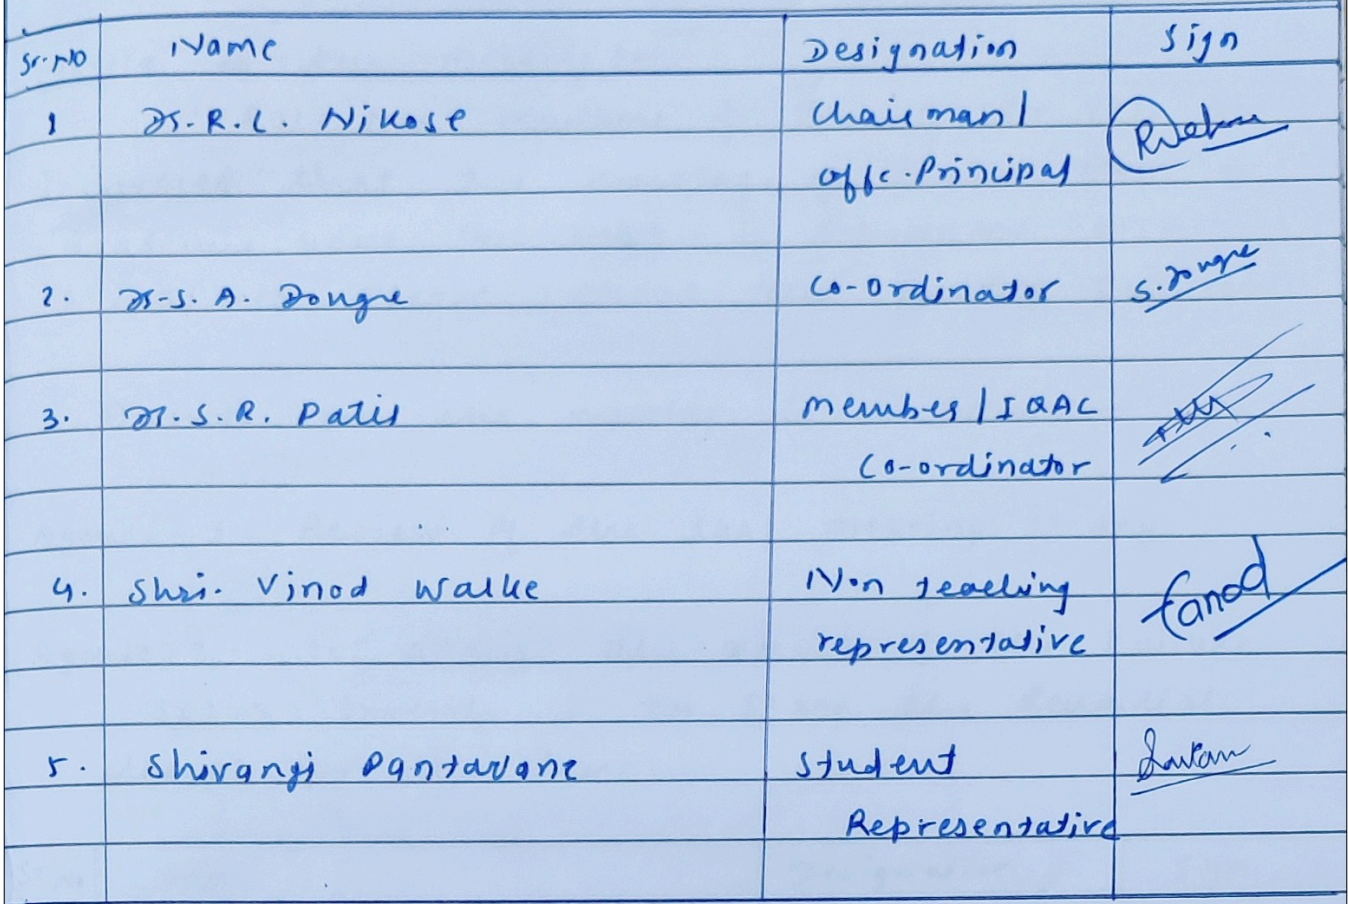 Sr.No Name Designation Sign
1 Dr. R. L. Nikose Chairman/
offc. Principal
2. Dr. S. A. Dongre Co-ordinator S. Dongre
3. Dr. S. R. Patil member / IQAC
Co-ordinator
4. Shri. Vinod Walke Non teaching
representative
5. Shivangi Pantavane Student
Representative